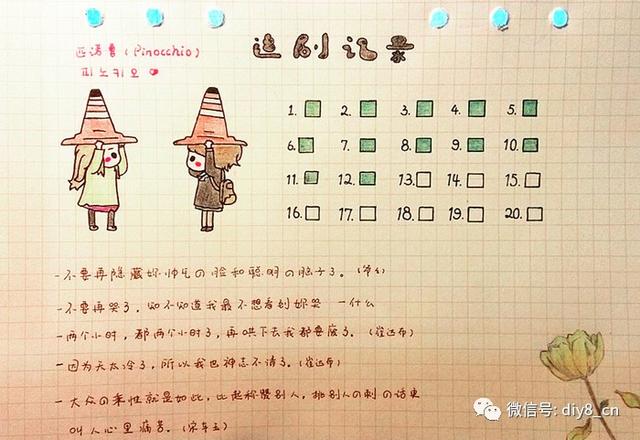 追剧记录
匹诺曹 (Pinocchio)
피노키오
1. 2. 3. 4. 5.
6. 7. 8. 9. 10.
11. 12. 13. 14. 15.
16. 17. 18. 19. 20.
- 不要再隐藏妳帅气の脸和聪明の脑子了。
- 不要再哭了，知不知道我最不想看到妳哭 一什么
- 两个小时，都两个小时了，再哄下去我都要废了。(崔达布)
- 因为天太冷了，所以我也神志不清了。(崔达布)
- 大众の柔性就是如此，比起称赞别人，挑别人の刺の话更
叫人心里痛苦。(宋车玉)
微信号: diy8_cn